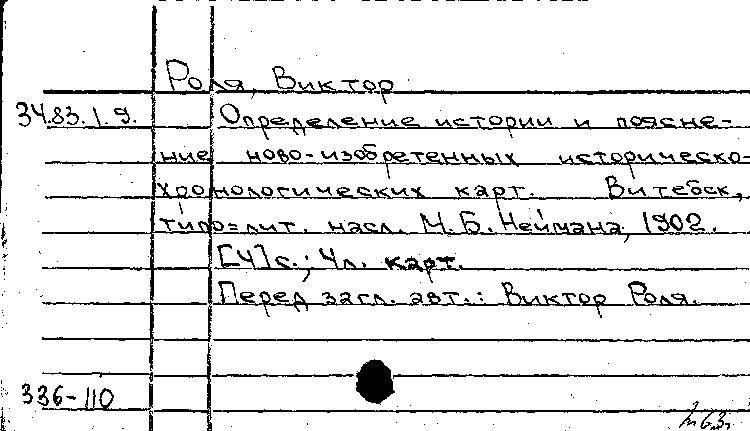 Роля, Виктор
34.83.1.9. Определение истории и поясне-
ние ново-изобретенных историческо
хронологических карт. Витебск,
типо=лит. насл. М.Б. Неймана, 1902.
[4]с.; 4л. карт.
Перед загл. авт.: Виктор Роля.
336-110